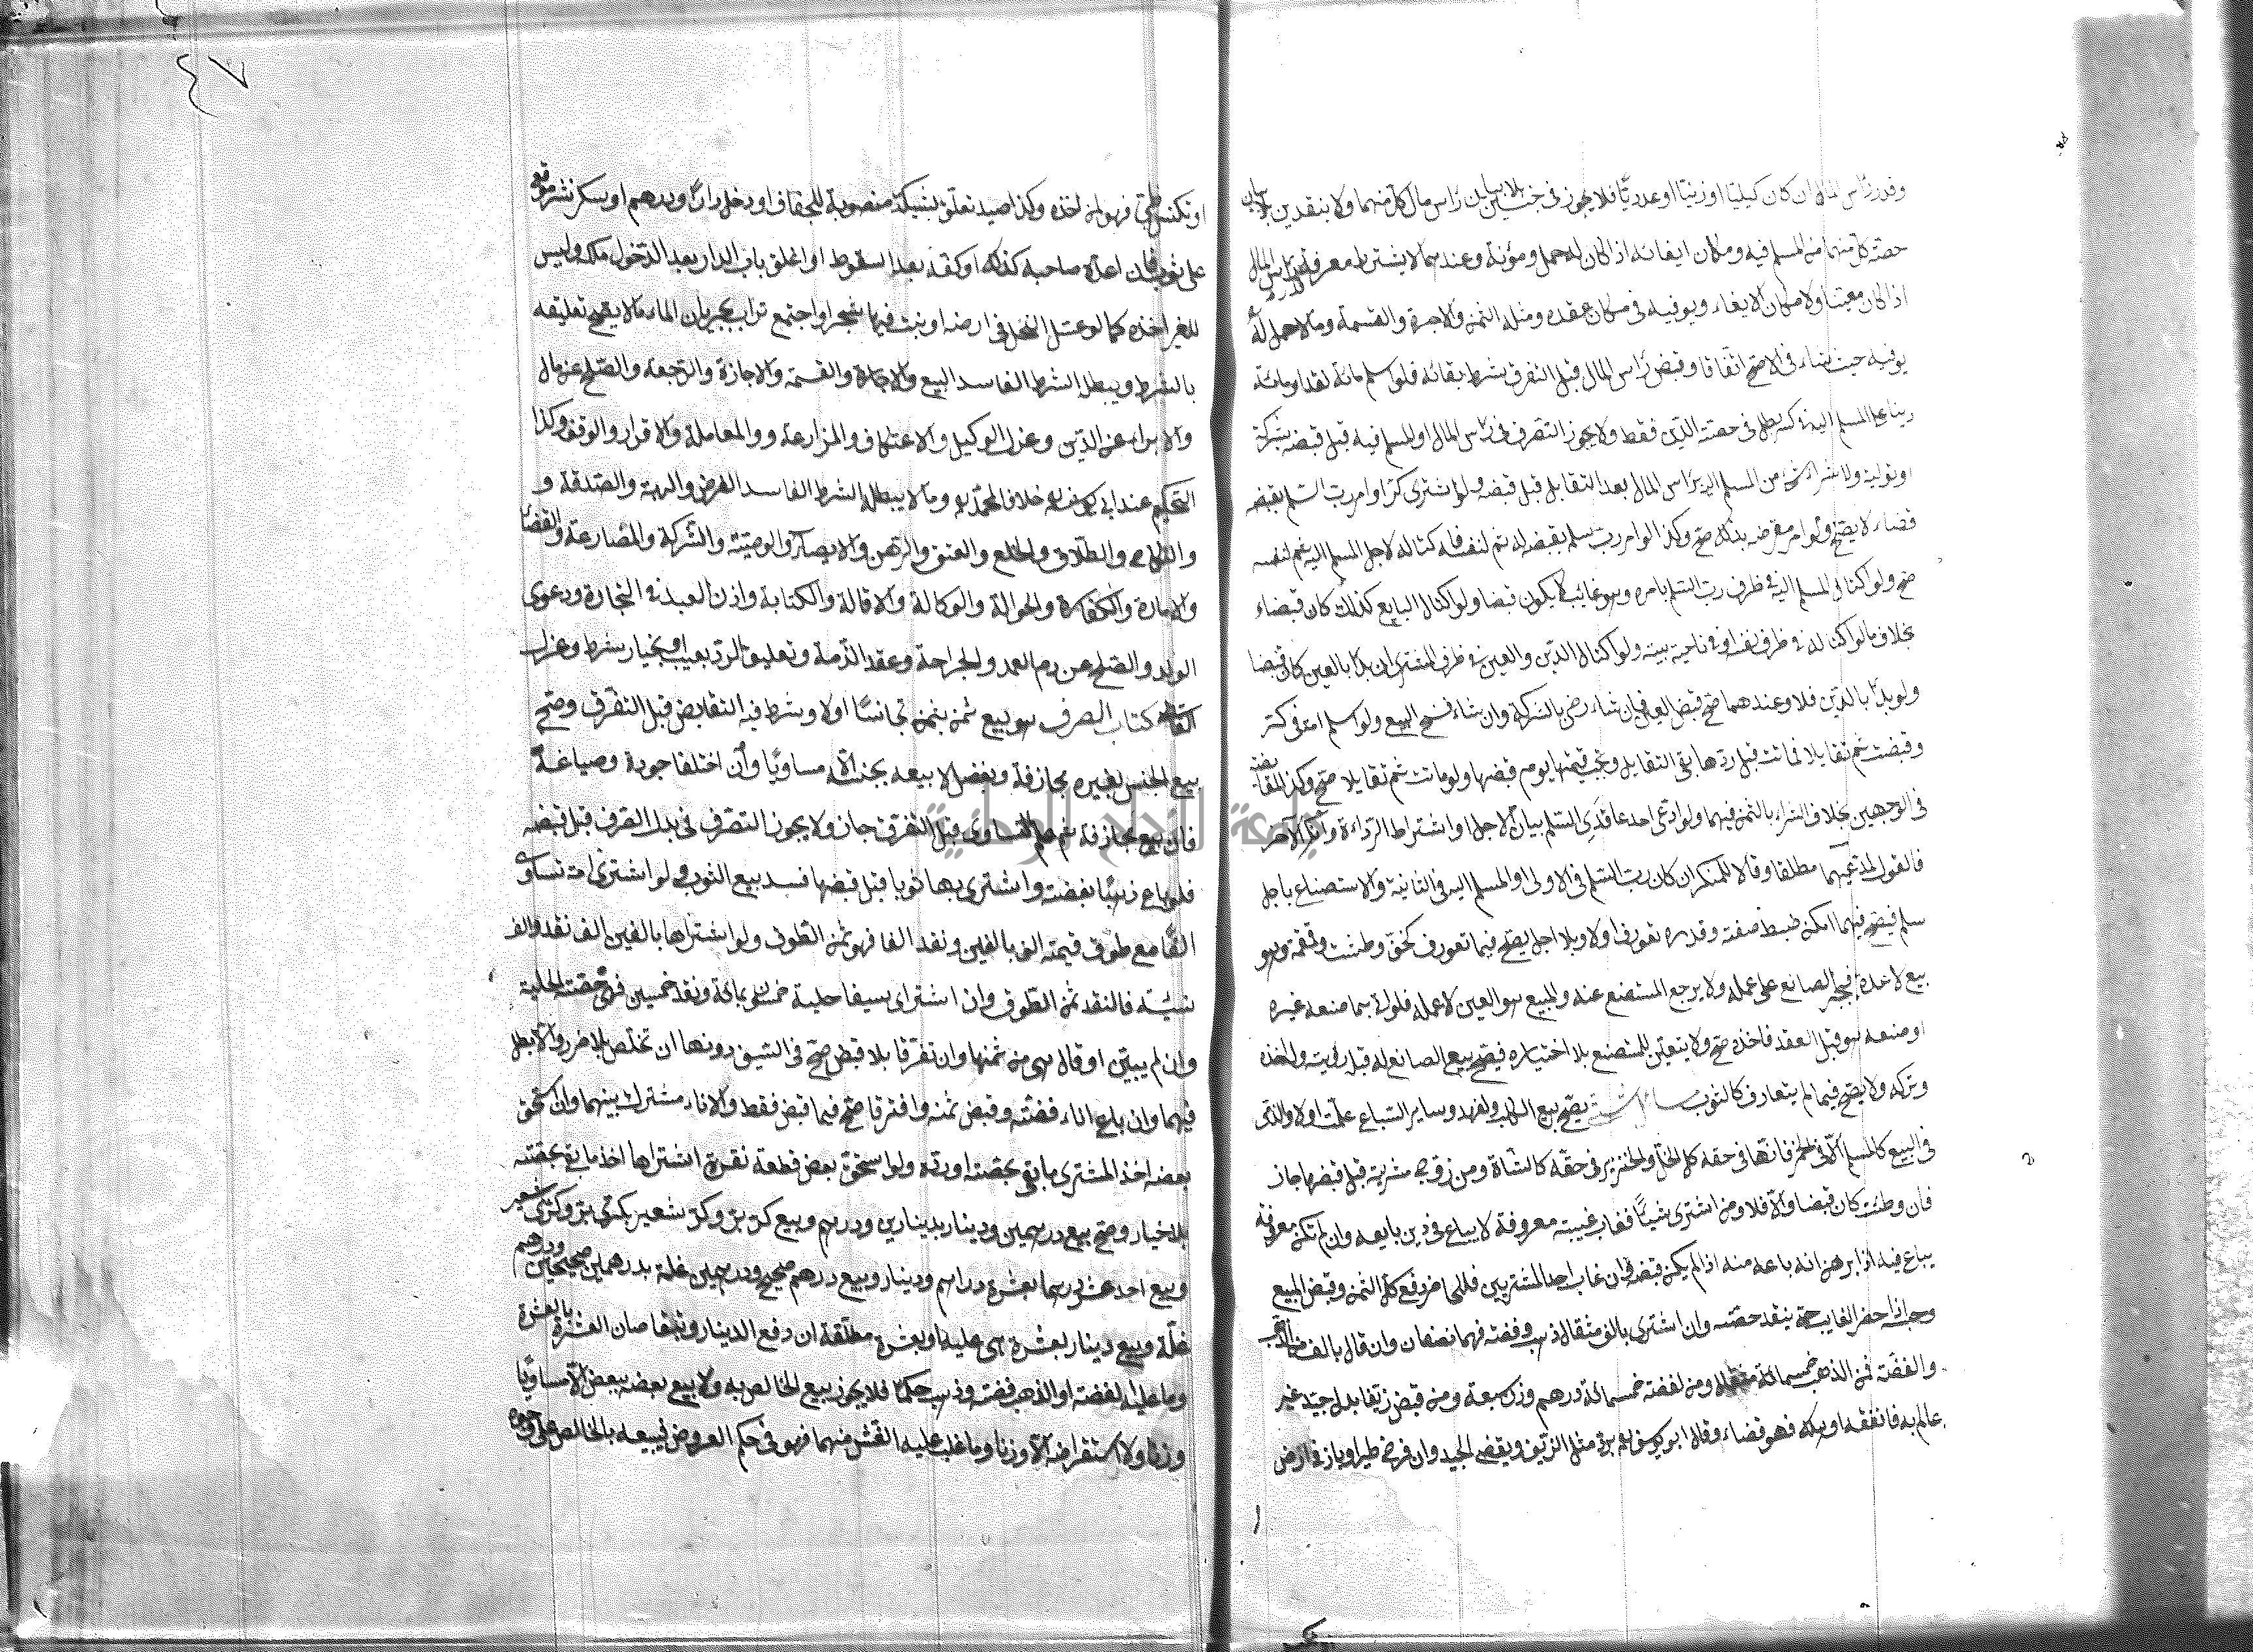 وقدر رأس المال ان كان كيليا او وزنيا او عدديا فلا يجوز في جنسين بلا بيان رأس مال كل منهما ولا بنقدين بلا بيان
حصة كل منهما من المسلم فيه ومكان ايفائه اذا كان له حمل ومؤنة وعندهما لا يشترط معرفة قدر رأس المال
اذا كان معينا ولا مكان الايفاء ويوفيه في مكان عقده ومثله الثمن والاجرة والقسمة وما لا حمل له
يوفيه حيث شاء في الاصح اتفاقا وقبض رأس المال قبل التفرق شرط بقائه فلو اسلم مائة نقدا ومائة
دينا على المسلم اليه في كر بطل في حصة الدين فقط ولا يجوز التصرف في رأس المال او المسلم فيه قبل قبضه بشركة
او تولية ولا شراء شيء من المسلم اليه برأس المال بعد التقايل قبل قبضه ولو اشترى كرا وامر رب السلم بقبضه
قضاء لا يصح ولو امر مقرضه بذلك صح وكذا لو امر رب سلم بقبضه له ثم لنفسه فاكتاله لاجل المسلم اليه ثم لنفسه
صح ولو اكتال المسلم اليه في ظرف رب السلم بامره وهو غائب لا يكون قبضا ولو اكتال البايع كذلك كان قبضاء
بخلاف ما لو اكتاله في ظرف نفسه او في ناحية بيته ولو اكتال الدين والعين في ظرف المشتري ان بدأ بالعين كان قبضا
ولو بدأ بالدين فلا وعندهما صح قبض العين فان شاء رضي بالشركة وان شاء فسخ البيع ولو اسلم امة في كر
وقبضت ثم تقايلا فماتت قبل ردها بقي التقايل وتجب قيمتها يوم قبضها ولو ماتت ثم تقايلا صح وكذا المقايضة
في الوجهين بخلاف الشراء بالثمن فيهما ولو ادعى احد عاقدي السلم بيان الاجل او اشتراط الرداءة وانكر الآخر
فالقول لمدعيهما مطلقا وقالا للمنكر ان كان رب السلم في الاولى او المسلم اليه في الثانية والاستصناع باجل
سلم فيصح فيما امكن ضبط صفته وقدره تعورف اولا وبلا اجل يصح فيما تعورف كخف وطست وقمقمة وهو
بيع لا عدة فيجبر الصانع على عمله ولا يرجع المستصنع عنه والمبيع هو العين لا عمله فلو اتى بما صنعه غيره
او صنعه هو قبل العقد فاخذه صح ولا يتعين للمستصنع بلا اختياره فيصح بيع الصانع له قبل رؤيته وله اخذه
وتركه ولا يصح فيما لم يتعارف كالثوب مسائل شتى يصح بيع الكلب والفهد وساير السباع علمت اولا والذمي
في البيع كالمسلم الا في الخمر فانها في حقه كالخل والخنزير في حقه كالشاة ومن زوج مشريته قبل قبضها جاز
فان وطئت كان قبضا والا فلا ومن اشترى شيئا فغاب غيبته معروفة لا يباع في دين بايعه وان لم تكن معروفة
يباع فيه اذا برهن انه باعه منه اذا لم يكن قبضه وان غاب احد المشتريين فللحاضر دفع كل الثمن وقبض المبيع
وحبسه اذا حضر الغايب حتى ينقد حصته وان اشترى بالف مثقال ذهب وفضة فهما نصفان وان قال بالف من الذهب
والفضة فمن الذهب خمسمائة مثقال ومن الفضة خمسمائة درهم وزن سبعة ومن قبض زيفا بدل جيد غير
عالم به فانفقه او هلك فهو قضاء وقال ابو يوسف يرد مثل الزيف ويقضي الجيد وان فرخ طير او باض في ارض
٤٧
او تكنس ظبي فهو لمن اخذه وكذا صيد تعلق بشبكة منصوبة للجفاف او دخل دارا ودرهم او سكر نثر فوقع
على ثوب فان اعده صاحبه كذلك او كفه بعد السقوط او اغلق باب الدار بعد الدخول ملكه وليس
للغير اخذه كما لو عسل النحل في ارضه او نبت فيها شجر او اجتمع تراب بجريان الماء ما لا يصح تعليقه
بالشرط ويبطله الشرط الفاسد البيع والاجارة والقسمة والاجازة والرجعة والصلح عن مال
والابراء عن الدين وعزل الوكيل والاعتكاف والمزارعة والمعاملة والاقرار والوقف وكذا
التحكيم عند ابي يوسف خلافا لمحمد وما لا يبطله الشرط الفاسد القرض والهبة والصدقة و
والنكاح والطلاق والخلع والعتق والرهن والايصاء والوصية والشركة والمضاربة والقضاء
والامارة والكفالة والحوالة والوكالة والاقالة والكتابة واذن العبد في التجارة ودعوى
الولد والصلح عن دم العمد والجراحة وعقد الذمة وتعليق الرد بعيب او بخيار شرط وعزل
القاضي كتاب الصرف هو بيع ثمن بثمن تجانسا اولا وشرط فيه التقابض قبل التفرق وصح
بيع الجنس بغيره مجازفة وبفضل لا بيعه بجنسه الا مساويا وان اختلفا جودة وصياغة
فان بيع مجازفة ثم علم التساوي قبل التفرق جاز ولا يجوز التصرف في بدل الصرف قبل قبضه
فلو باع ذهبا بفضة واشترى بها ثوبا قبل قبضها فسد بيع الثوب ولو اشترى امة تساوي
الفا مع طوق قيمته الف بالفين ونقد الفا فهو ثمن الطوق ولو اشتراها بالفين الف نقد والف
نسيئة فالنقد ثمن الطوق وان اشترى سيفا حلية خمسون بمائة ونقد خمسين فهي حصة الحلية
وان لم يبين او قال هي من ثمنها وان تفرقا بلا قبض صح في السيف دونها ان تخلص بلا ضرر والا بطل
فيهما وان باع اناء فضة وقبض ثمنه وافترقا صح فيما قبض فقط والاناء مشترك بينهما وان استحق
بعضه اخذ المشتري ما بقي بحصته او رده ولو استحق بعض قطعة نقرة اشتراها اخذ ما بقي بحصته
بلا خيار وصح بيع درهمين ودينار بدينارين ودرهم وبيع كر بر وكر شعير بكري بر وكري شعير
وبيع احد عشر درهما بعشرة دراهم ودينار وبيع درهم صحيح ودرهمين غلة بدرهمين صحيحين ودرهم
غلة وبيع دينار بعشرة هي عليه او بعشرة مطلقة ان دفع الدينار ويتقاصان العشرة بالعشرة
وما غلب الفضة او الذهب فضة وذهب حكما فلا يجوز بيع الخالص به ولا بيع بعضه ببعض الا مساويا
وزنا ولا استقراضه الا وزنا وما غلب عليه الغش منهما فهو في حكم العروض فبيعه بالخالص على وجوه